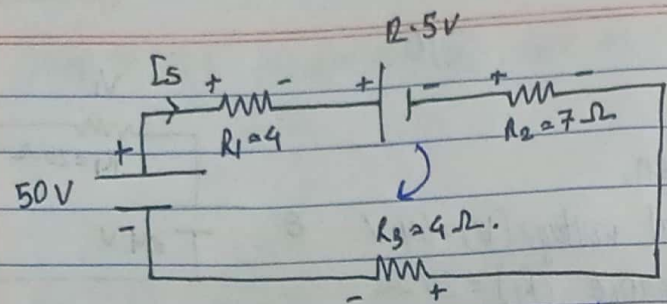 12.5V
Is + - + - + -
R1=4
R2=7 Ω
+
50V
-
R3=4 Ω.
- +